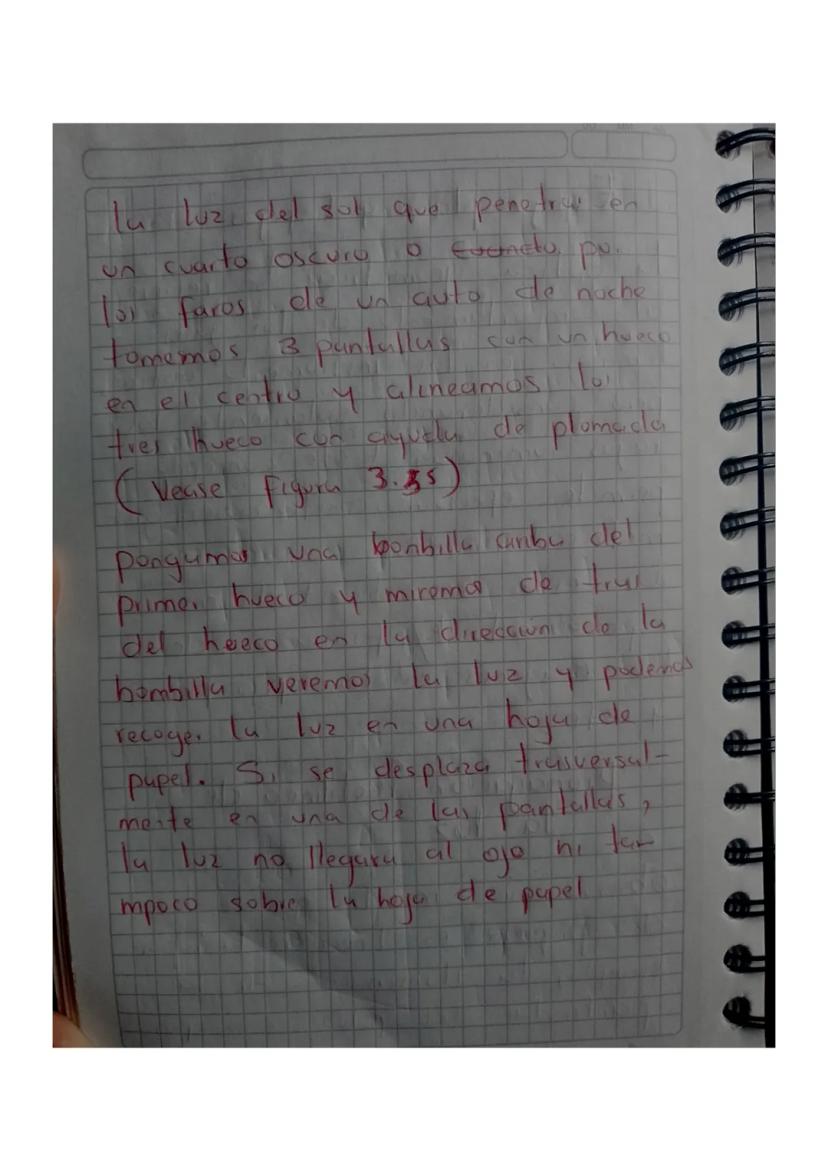 la luz del sol que penetra en
un cuarto oscuro o po.
los faros de un auto de noche
tomemos 3 pantallas con un hueco
en el centro y alineamos lo.
tres hueco con ayuda de plomada
(Vease figura 3.35)
pongamos una bonbilla cariba del
primer hueco y miremos de tras
del heeco en la dirección de la
bombilla veremos la luz y podemos
recoger la luz en una hoja de
papel. Si se desplaza trasversal-
mente en una de las pantallas,
la luz no llegara al ojo ni tan
mpoco sobre la hoja de papel